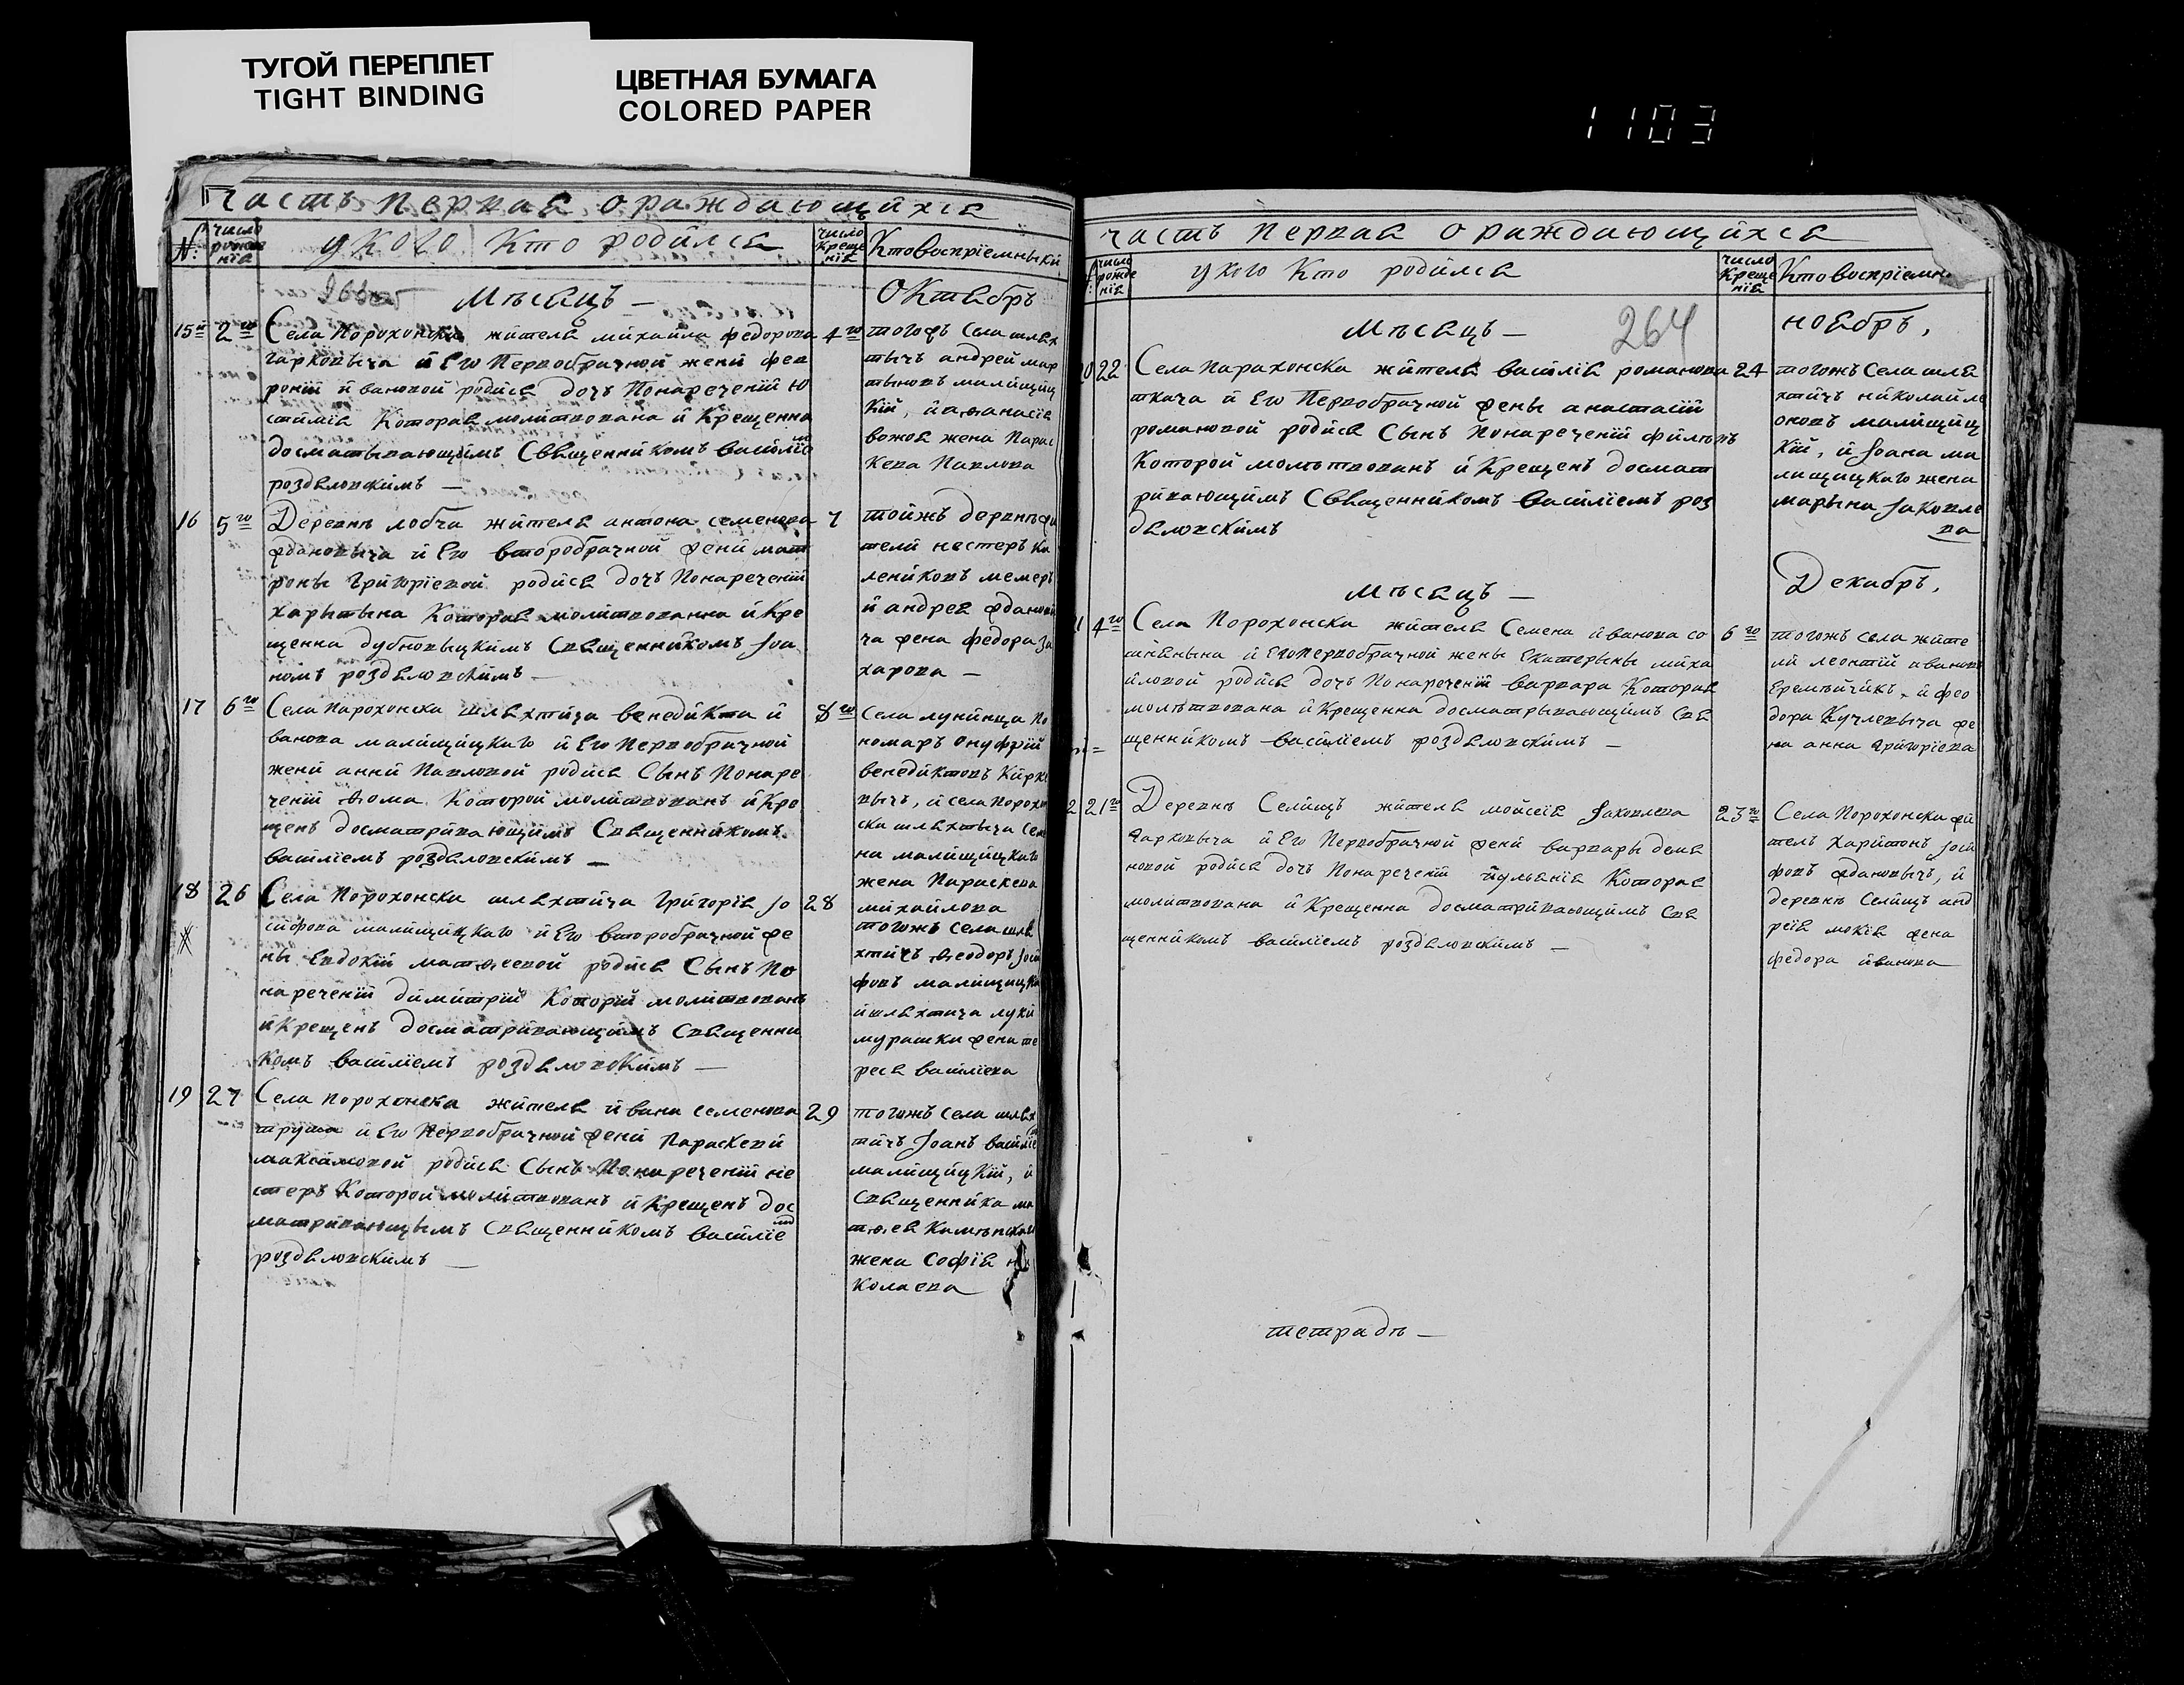 ТУГОЙ ПЕРЕПЛЕТ
TIGHT BINDING
ЦВЕТНАЯ БУМАГА
COLORED PAPER
1103
Часть первая ораждающихся
№ число рожде нія
у кого кто родился
число креще нія
Кто воспріемники
Мѣсяцъ —
Октябрь
15 2го Села Порохонска жителя михаила федорова 4го
гарковыча и Его Первобрачной жени фев
роніи ивановой родися дочь Понареченіи Ю
стинія Которая молитвована и Крещенна
досматрывающимъ Священникомъ васіліем
роздяловскимъ —
тогожъ Села шлях
тычъ андрей мар
тыновъ малищиц
кій, и афанасія
жена Парас
кева Павлова
16 5го Деревнѣ лобча жителя антона семенова 7
ждановыча и Его второбрачной жени мат
роны Григоріевой родися дочь Понареченіи
Харытына Которая молитвованна и Кре
щенна дубновыцкимъ Священникомъ Јоа
номъ роздяловскимъ —
тойжъ деревнѣ жи
тели нестеръ ка
лениковъ мемеръ
и андрея жданови
ча жена федора За
харова —
17 6го Села Парохонска шляхтича венедикта и 8го
ванова малищицкаго и Его Первобрачной
жени анни Павловой родися Сынъ Понаре
ченіи ѳома Которой молитвованъ и Кре
щенъ досматривающимъ Священникомъ
васіліемъ роздяловскимъ —
Села лунинца По
номаръ Онуфрій
венедиктовъ Кирке
вычъ, и села Порохон
ска шляхтыча Семе
на малищицкаго
жена Параскева
михайлова
18 26 Села Порохонска шляхтича Григорія Јо 28
сифова малищицкаго и Его второбрачной же
ны Евдокіи матѳеевой родися Сынъ По
нареченіи димитрій Которій молитвованъ
и Крещенъ досматривающимъ Священни
комъ васіліемъ роздяловскимъ —
тогожъ села шля
хтичъ ѳеодоръ Јоси
фовъ малищицкій
и шляхтича луки
мурашки жена те
реся васіліева
19 27 Села Порохонска жителя ивана семенова 29
труша и Его Первобрачной жени Параскеви
максимовой родися Сынъ Понареченіи не
стеръ Которой молитвованъ и Крещенъ дос
матривающымъ Священникомъ васіліем
роздяловскимъ —
тогожъ села шлях
тичъ Јоанъ васіліев
малищицкій, и
Священника ма
тѳея
жена Софія ни
колаева
часть Первая ораждающихся
число рожде нія
у кого кто родился
число Креще нія
Кто воспріемни
264
Мѣсяцъ —
ноябрь,
20 22 Села Парахонска жителя василія романова 24
ткача и Его Первобрачной жены анастасіи
романовой родися Сынъ Понареченіи филипъ
Которой молитвованъ и Крещенъ досмат
ривающимъ Священникомъ васіліемъ роз
дяловскимъ
тогожъ Села шля
хтичъ николай ле
оновъ малищиц
кій, и Јоана ма
лищицкаго жена
марына Јаковле
ва
Мѣсяцъ —
Декабрь,
21 4го Села Порохонска жителя Семена иванова со 6го
и Его первобрачной жены Екатерыны миха
йловой родися дочь Понареченіи варвара Которая
молитвована и Крещенна досматрывающимъ Свя
щенникомъ васіліемъ роздяловскимъ —
тогожъ села жите
ли леонтій ивановъ
Еремѣйчикъ, и фео
дора Кучлевыча же
на анна Григоріева
22 21го Деревнѣ Селищъ жителя мойсея Јаковлева 23го
Гарковыча и Его Первобрачной жени варвары демя
новой родися дочь Понареченіи иуліанія Которая
молитвована и Крещенна досматривающимъ Свя
щенникомъ васіліемъ роздяловскимъ —
Села Порохонска жи
тель Харитонъ Јоси
фовъ ждановычъ, и
деревнѣ Селищъ анд
рея мокія жена
федора иванова
тетрадь —